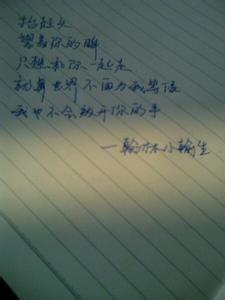 抬起头
望着你的眸
只想和你一起走
就算世界不因为我等候
我也不会放开你的手
—翰林小翰生